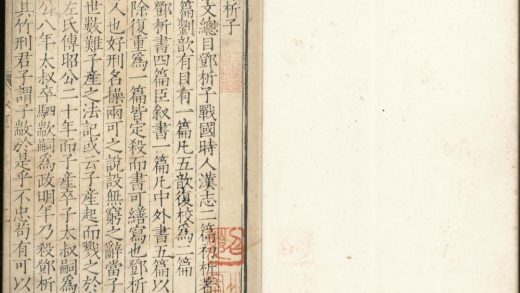 析子
文總目鄧析子戰國時人漢志二篇初析著
篇劉歆有目有一篇凡五歆復校爲二篇
鄧析書四篇臣叙書一篇凡中外書五篇以
除復重爲一篇皆定殺而書可繕寫也鄧析
人也好刑名操兩可之說設無窮之辭當子
世數難子產之法記或云子產起而戮之於
左氏傳昭公二十年而子產卒子太叔嗣爲
公八年太叔卒駟歂嗣爲政明年乃殺鄧析
其竹刑君子謂子歂於是乎不忠苟有可以